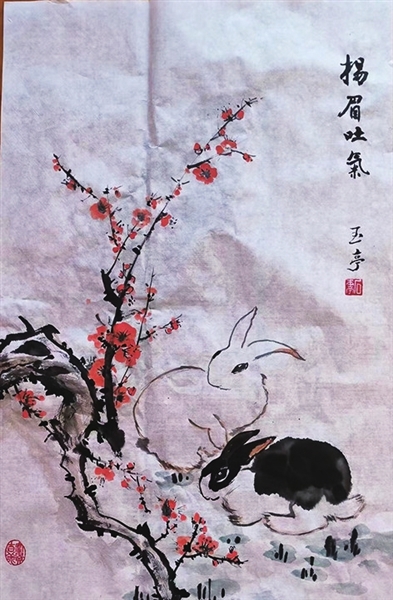 揚眉吐氣
玉亭